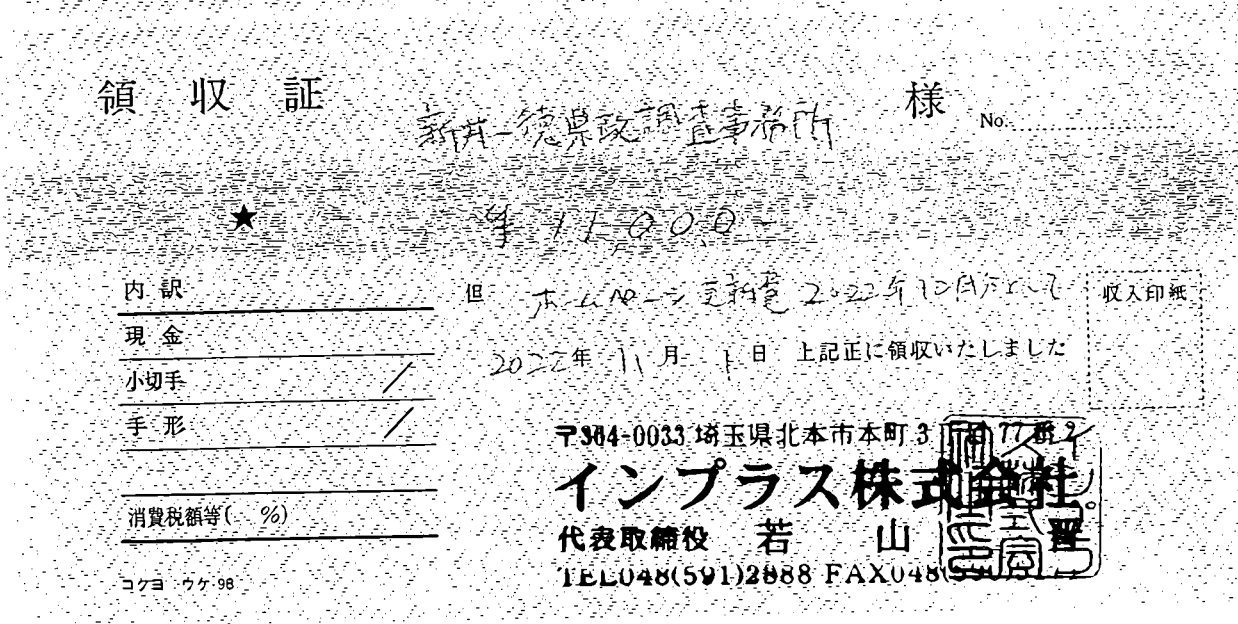 領収証
新井一徳県政調査事務所 様 No.
★ ¥11,000-
内訳
現金
小切手
手形
消費税額等( %)
コクヨ ウケ-98
但 ホームページ更新費 2022年10月分として
2022年 11月 1日 上記正に領収いたしました
収入印紙
〒364-0033 埼玉県北本市本町3丁目77番2
インプラス株式会社
代表取締役 若山
TEL048(591)2888 FAX048